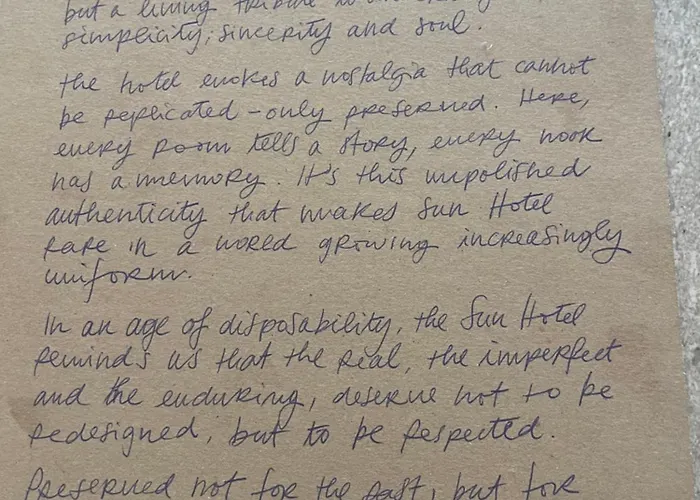 but a living tribute to
simplicity, sincerity and soul.
the hotel evokes a nostalgia that cannot
be replicated – only preserved. Here,
every room tells a story, every nook
has a memory. It's this unpolished
authenticity that makes Sun Hotel
rare in a world growing increasingly
uniform.
In an age of disposability, the Sun Hotel
reminds us that the real, the imperfect
and the enduring, deserve not to be
redesigned, but to be respected.
Preserved not for the past, but for